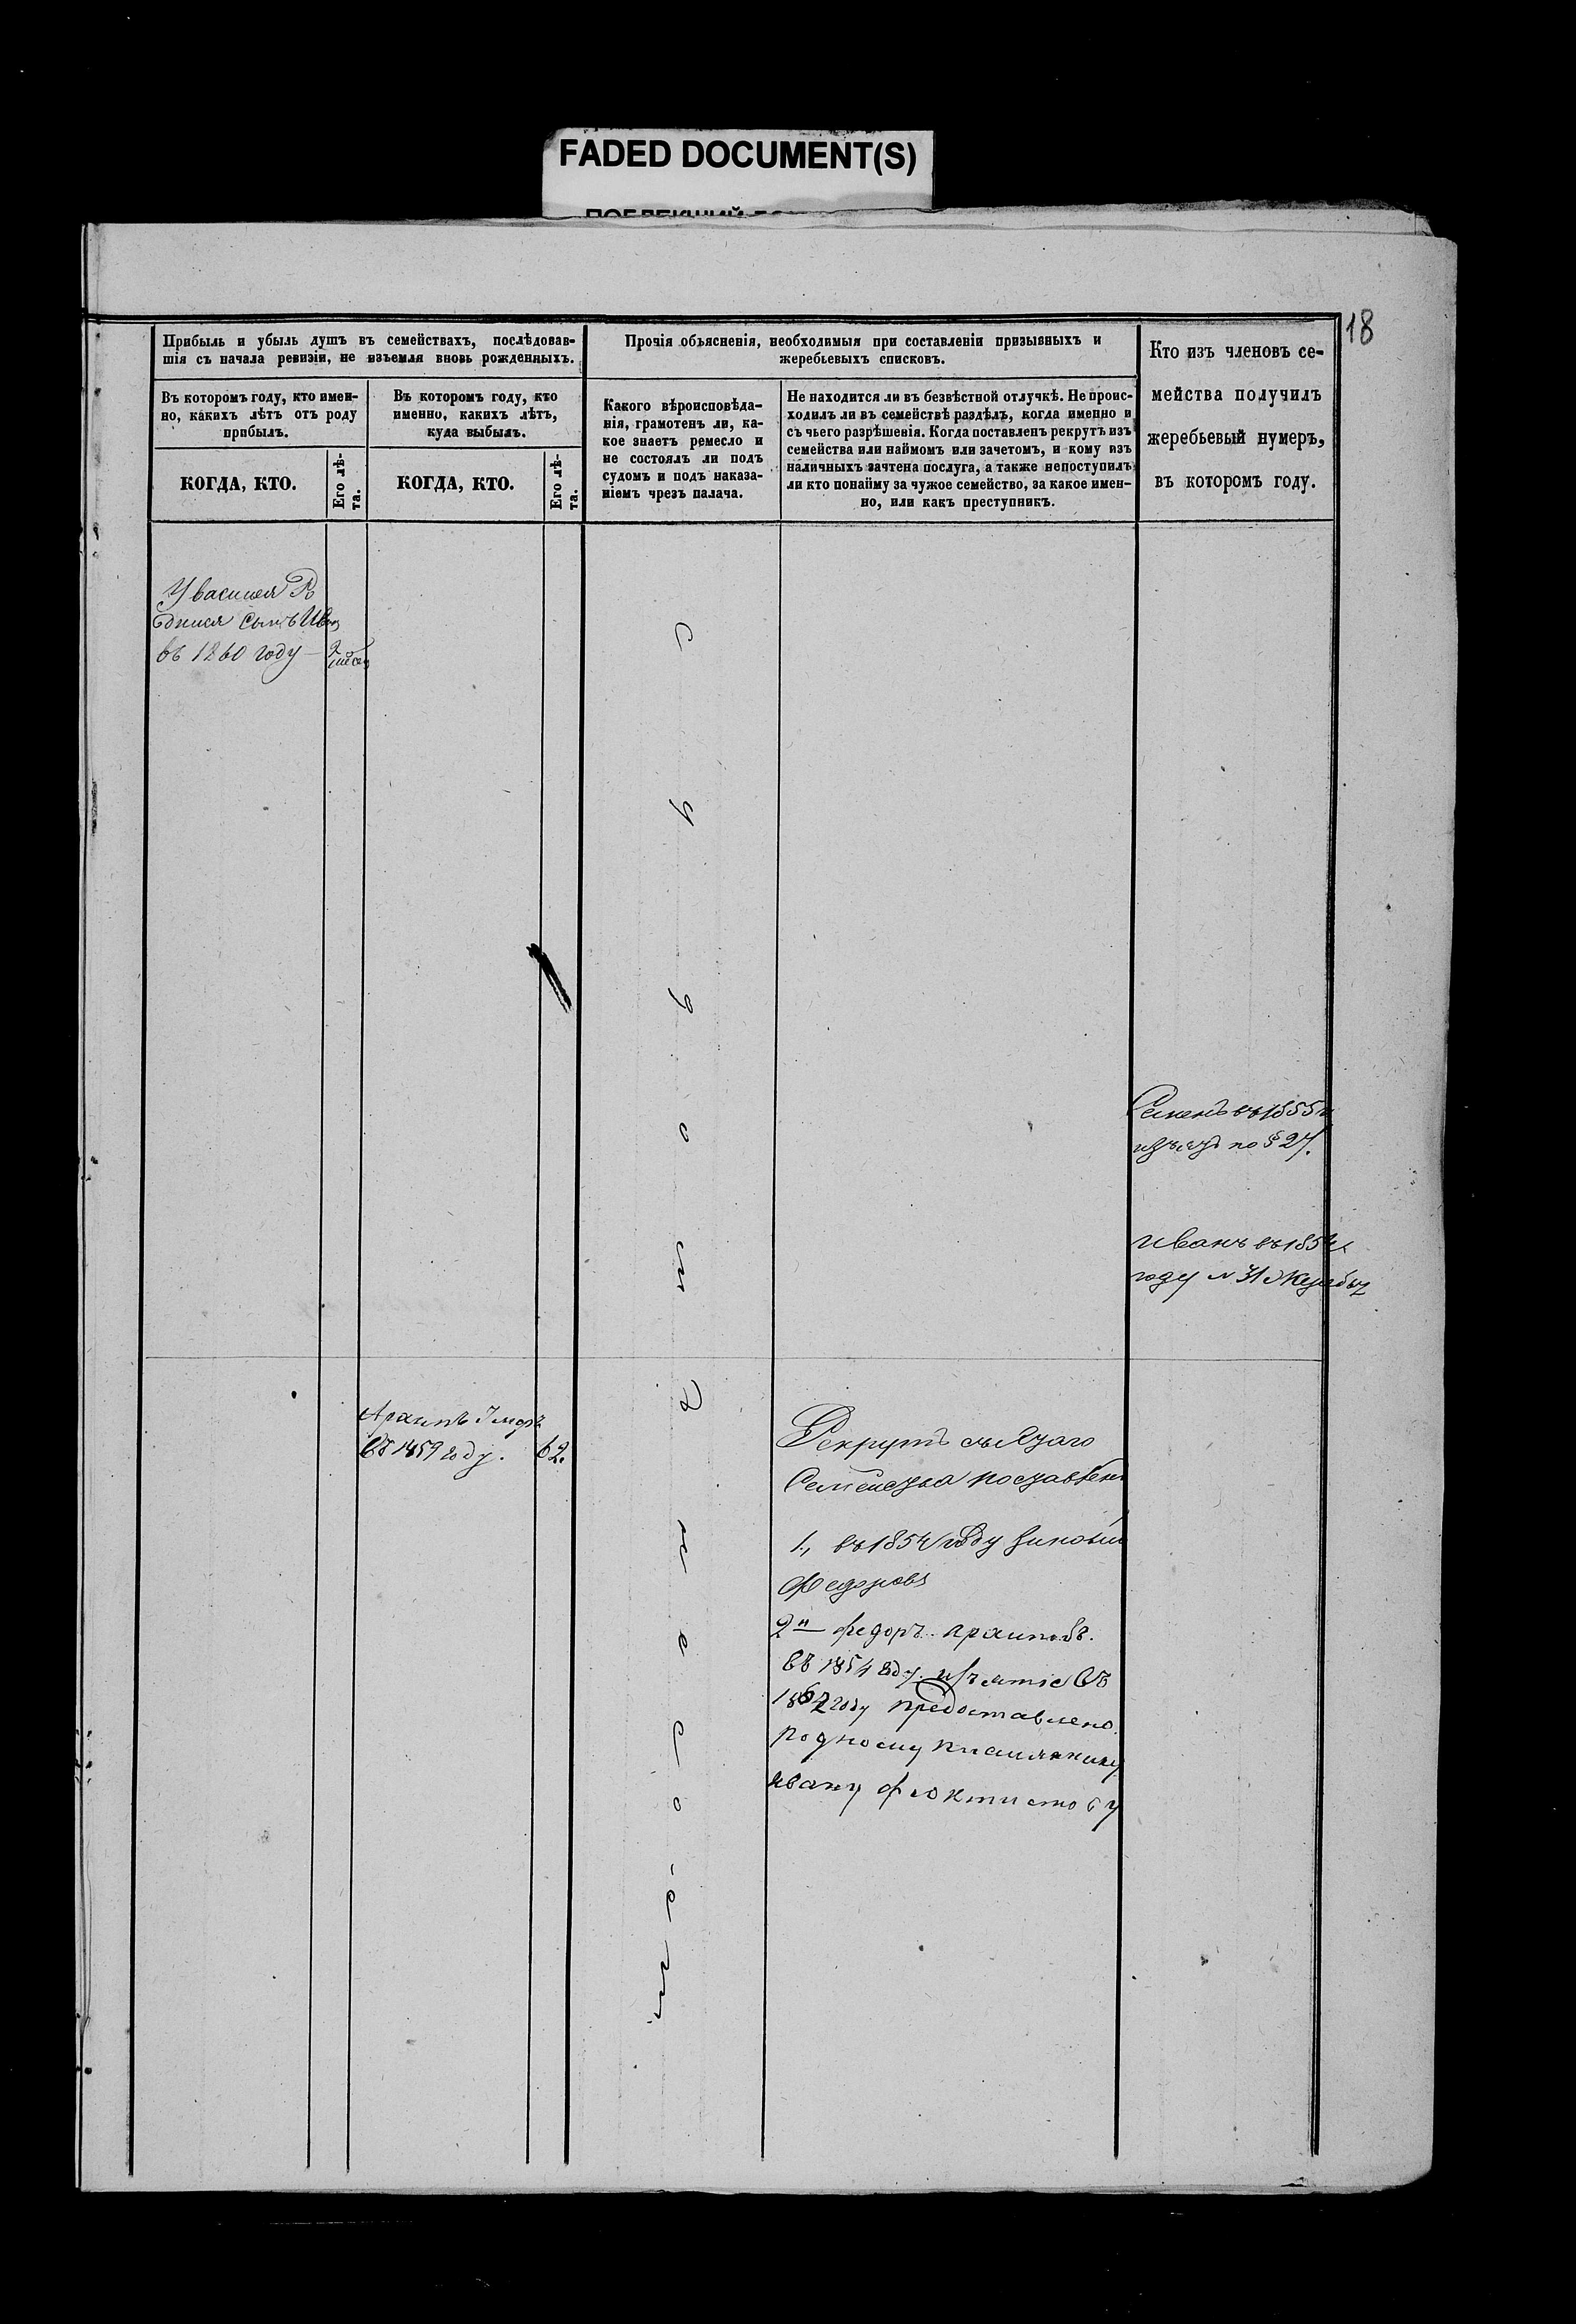 FADED DOCUMENT(S)
18
Прибыль и убыль душъ въ семействахъ, послѣдовав-
шія съ начала ревизіи, не изъемля вновь рожденныхъ.
Въ которомъ году, кто имен-
но, какихъ лѣтъ отъ роду
прибылъ.
КОГДА, КТО.
Его лѣ-
та.
Въ которомъ году, кто
именно, какихъ лѣтъ,
куда выбылъ.
КОГДА, КТО.
Его лѣ-
та.
Прочія объясненія, необходимыя при составленіи призывныхъ и
жеребьевыхъ списковъ.
Какого вѣроисповѣда-
нія, грамотенъ ли, ка-
кое знаетъ ремесло и
не состоялъ ли подъ
судомъ и подъ наказа-
ніемъ чрезъ палача.
Не находится ли въ безвѣстной отлучкѣ. Не проис-
ходилъ ли въ семействѣ раздѣлъ, когда именно и
съ чьего разрѣшенія. Когда поставленъ рекрутъ изъ
семейства или наймомъ или зачетомъ, и кому изъ
наличныхъ зачтена послуга, а также непоступилъ
ли кто понайму за чужое семейство, за какое имен-
но, или какъ преступникъ.
Кто изъ членовъ се-
мейства получилъ
жеребьевый нумеръ,
въ которомъ году.
У василия Ро
дился сынъ Иван
въ 1860 году
Семенъ въ 1855
изъятъ по § 27.
Иванъ въ 185
году № 31
Архипъ Умеръ
въ 1859 году. 62.
Рекрутъ съ Сего
Семейства поставленъ
1., въ 1854 году Зиновий
Федоровъ
2й федоръ архиповъ.
въ 1854 году. изъятіе въ
1862 году предоставлено
родному племяннику
ивану феоктистову